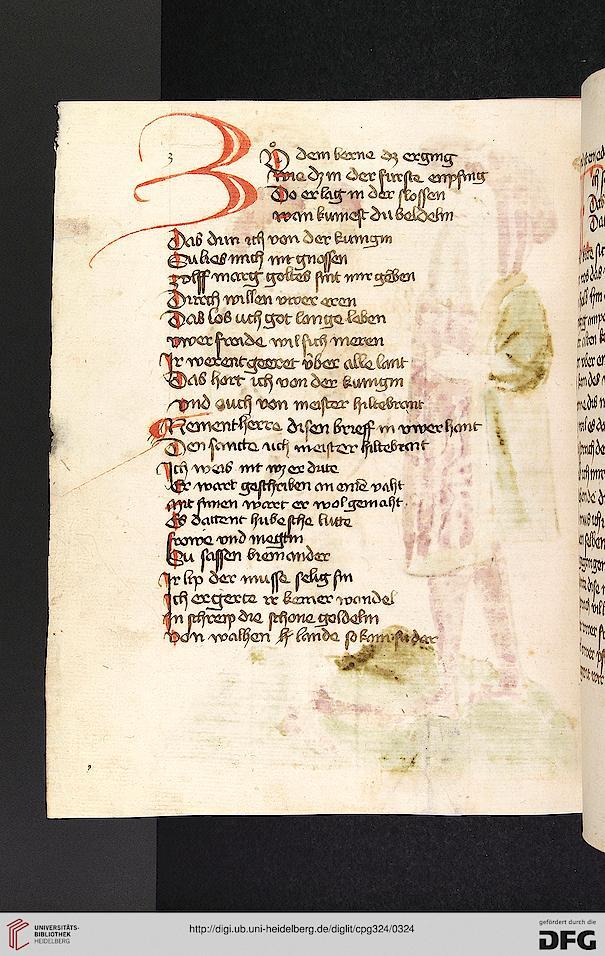 Zů dem berne dz erging
wie dz in der furste enpfing
Do er lag in der slossen
wan kumest du beldelin
Das dun ich von der kunigin
Su lies mich nit gnossen
zolff marg goltes sint mir geben
Durch willen uwer eren
Das los uch got lange leben
uwer froide wil sich meren
Ir werent geeret uber alle lant
Das hort ich von der kunigin
und ouch von meister hiltebrant
Nement herre disen brieff in uwer hant
Den sancte uch meister hiltebrant
Ich weis nit wz er dute
Er wart geschriben an eine naht
mit sinen wart er wol gemaht
Es dattent hubesche lutte
frowe und megtin
Su sassen bienander
Ir lip der musse selig sin
Ich ergerte ir keiner wandel
In schreip die schone goldelin
von walhen lande so kam su dar
UNIVERSITÄTS-
BIBLIOTHEK
HEIDELBERG
http://digi.ub.uni-heidelberg.de/diglit/cpg324/0324
gefördert durch die
DFG